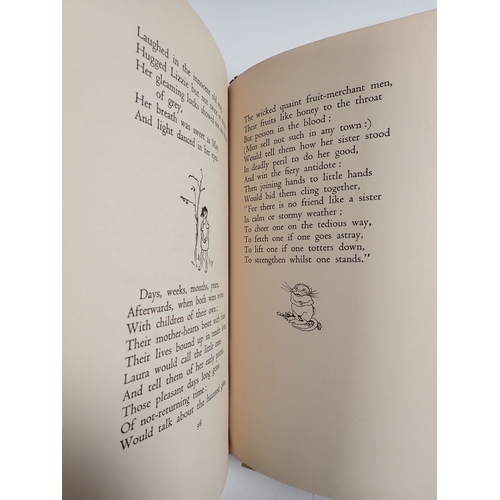 Laughed in the innocent old way,
Hugged Lizzie but not twice or thrice;
Her gleaming locks showed not one thread
of grey,
Her breath was sweet as May
And light danced in her eyes.
Days, weeks, months, years,
Afterwards, when both were wives
With children of their own;
Their mother-hearts beset with fears,
Their lives bound up in tender lives;
Laura would call the little ones
And tell them of her early prime,
Those pleasant days long gone
Of not-returning time:
Would talk about the haunted glen,
96
The wicked quaint fruit-merchant men,
Their fruits like honey to the throat
But poison in the blood;
(Men sell not such in any town:)
Would tell them how her sister stood
In deadly peril to do her good,
And win the fiery antidote:
Then joining hands to little hands
Would bid them cling together,
"For there is no friend like a sister
In calm or stormy weather;
To cheer one on the tedious way,
To fetch one if one goes astray,
To lift one if one totters down,
To strengthen whilst one stands."